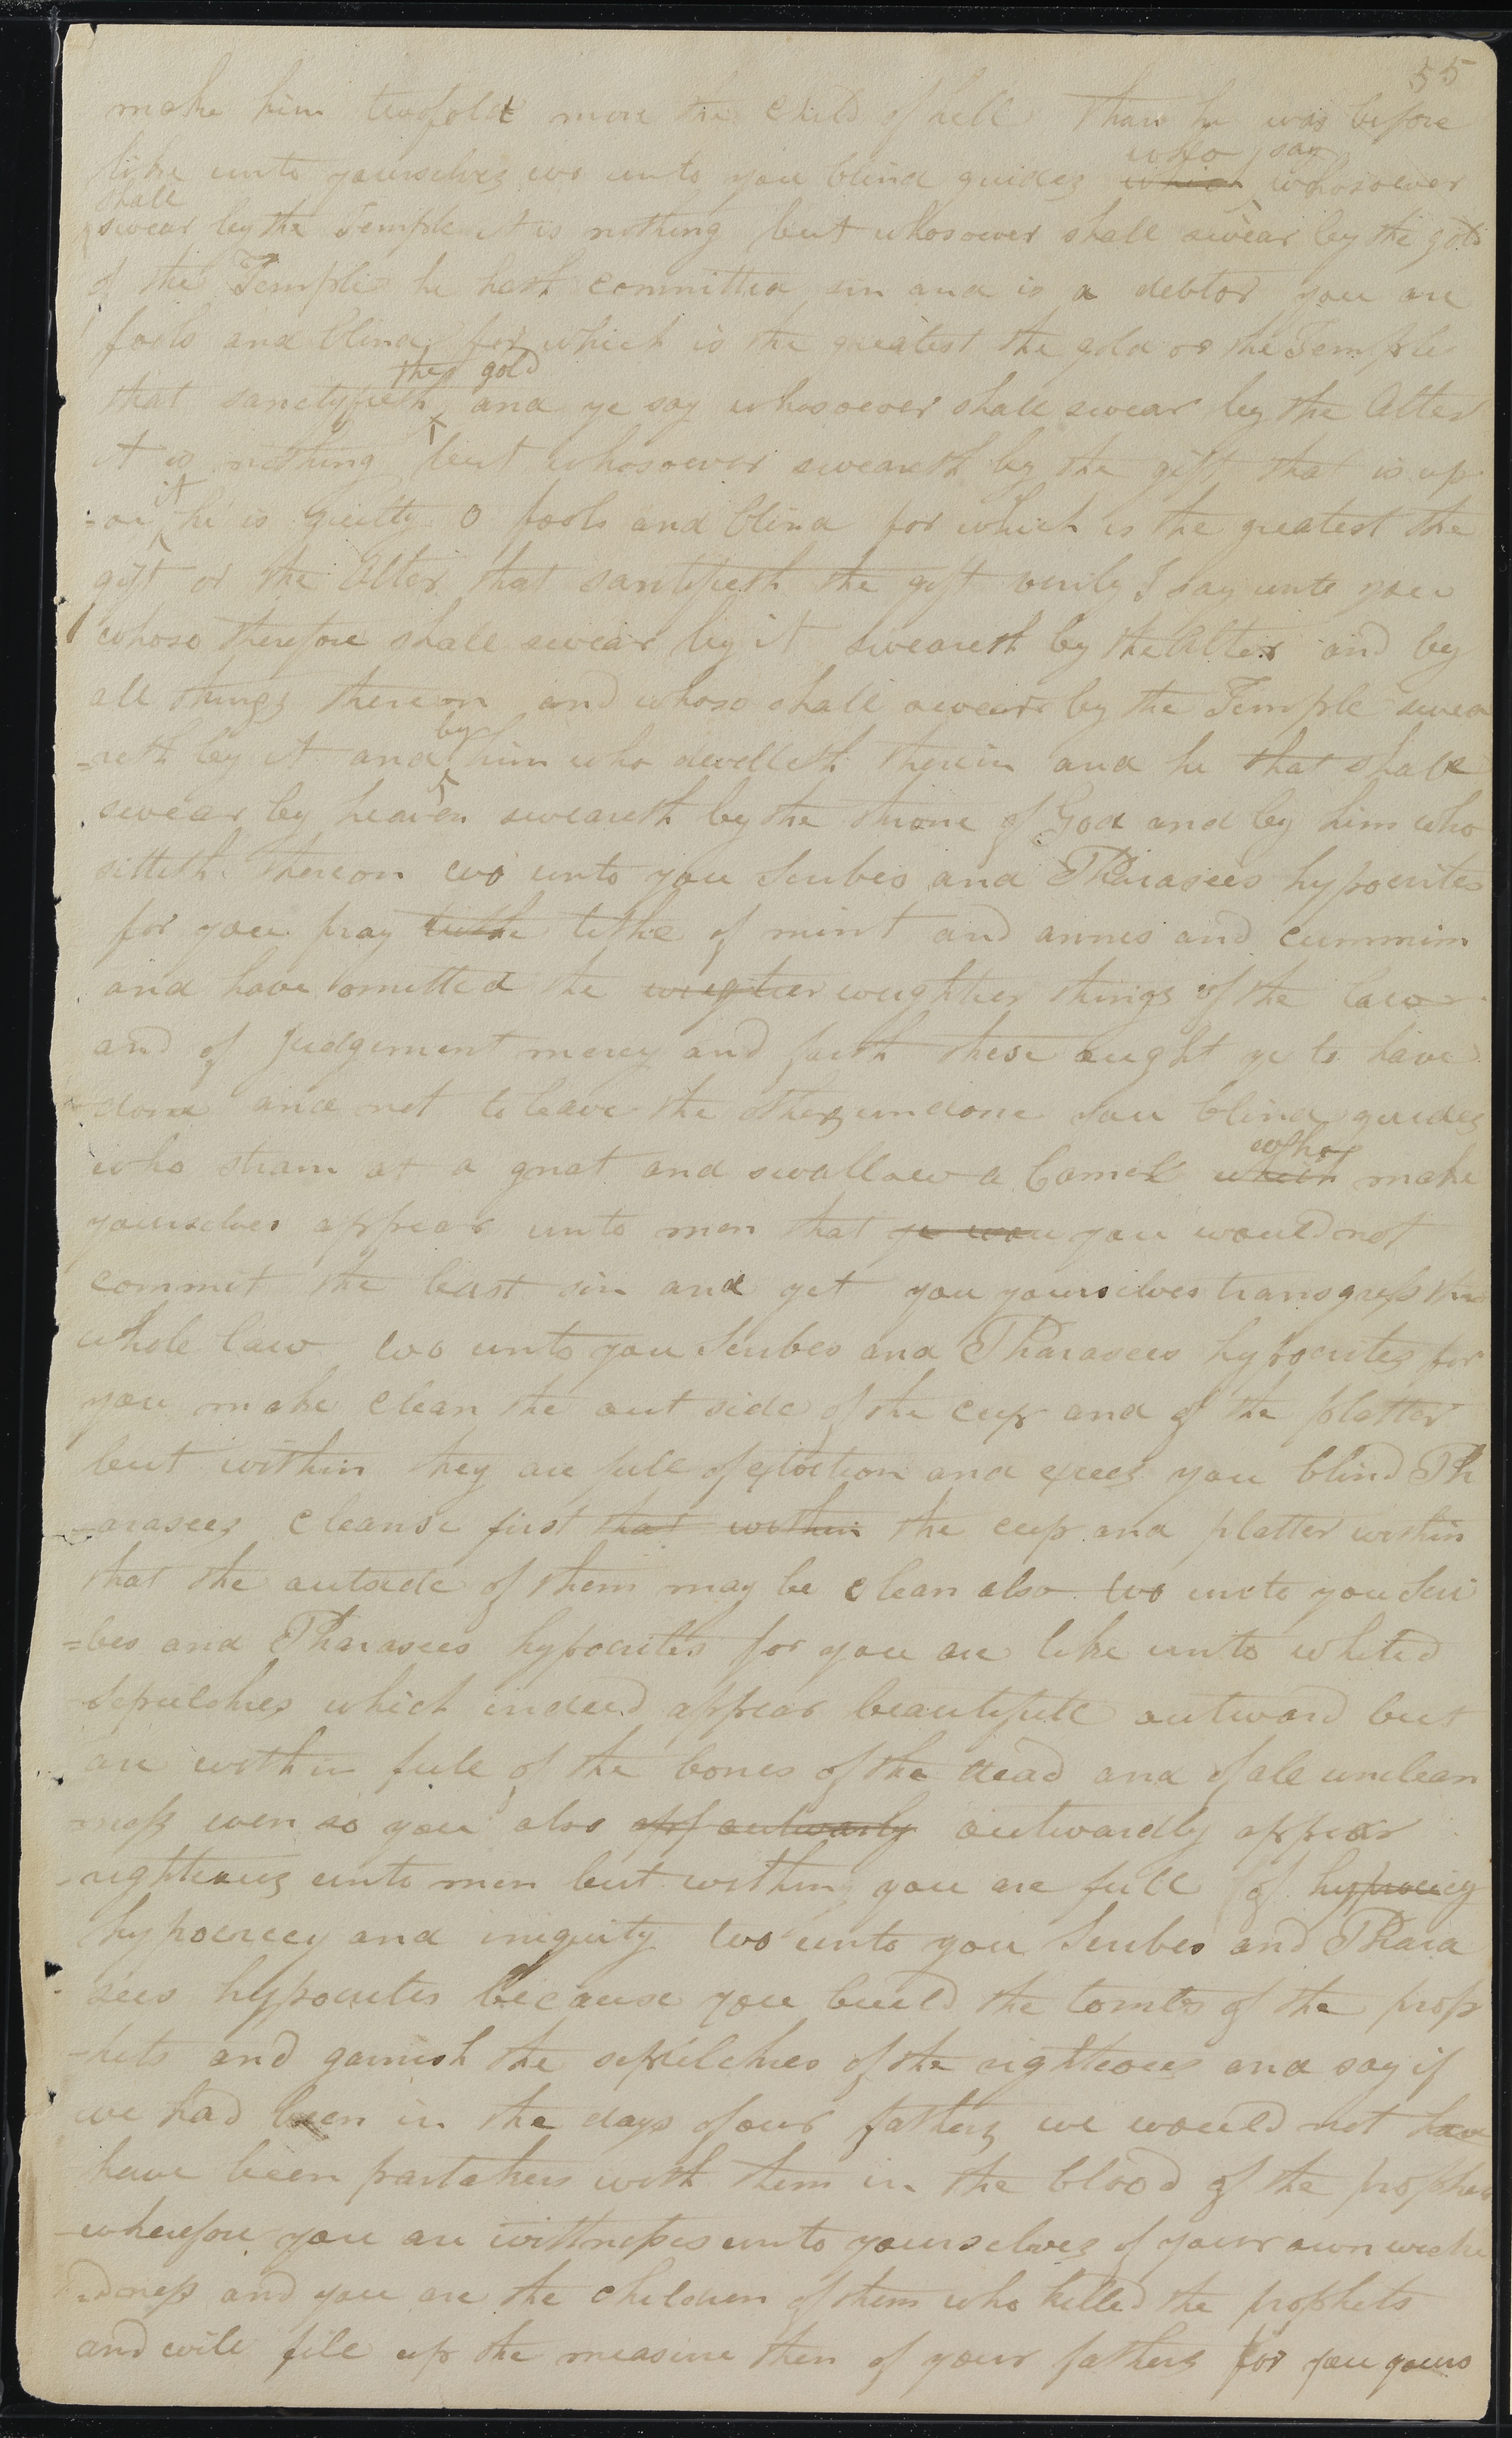 55
make him twofold more the child of hell than he was before
who say
like unto yourselves wo unto you blind guides which whosoever
shall
swear by the Temple it is nothing but whosoever shall swear by the gold
of the Temple he hath committed sin and is a debtor you are
fools and blind for which is the greatest the gold or the Temple
the gold
that sanctyfieth and ye say whosoever shall swear by the Alter
it is nothing but whosoever sweareth by the gift that is up
it
=on he is guilty O fools and blind for which is the greatest the
gift or the Alter that santifieth the gift verily I say unto you
whoso therefore shall swear by it sweareth by the Alter and by
all things thereon and whoso shall swear by the Temple swea
by
=reth by it and him who dwelleth therein and he that shall
swear by heaven sweareth by the throne of God and by him who
sitteth thereon wo unto you Scribes and Pharasees hypocrites
for you pay tithe of mint and annis and cummim
and have omitted the wieghtier weightier things of the law
and of Judgement mercy and faith these aught ye to have
done and not to leave the others undone you blind guides
who
who strain at a gnat and swallow a Camel which make
yourselves appear unto men that ye wou you would not
commit the least sin and yet you yourselves transgress the
whole law wo unto you Scribes and Pharasees hypocrites for
you make clean the out side of the cup and of the platter
but within they are full of extortion and exces you blind Ph
arasees cleanse first that within the cup and platter within
that the outside of them may be clean also wo unto you Scri
=bes and Pharasees hypocrites for you are like unto whited
sepulchres which indeed appear beautifull outward but
are within full of the bones of the dead and of all unclean
=ness even so you also app outwarly outwardly appear
righteous unto men but within you are full of hypocricy
hypocricy and iniquity wo unto you Scribes and Phara
sees hypocrites because you build the tombs of the prop
-hets and garnish the sepulchres of the righteous and say if
we had been in the days of our fathers we would not have
have been partakers with them in the blood of the prophets
wherefore you are wittnesses unto yourselves of your own wicke
dness and you are the children of them who killed the prophets
and will fill up the measure then of your fathers for you yours